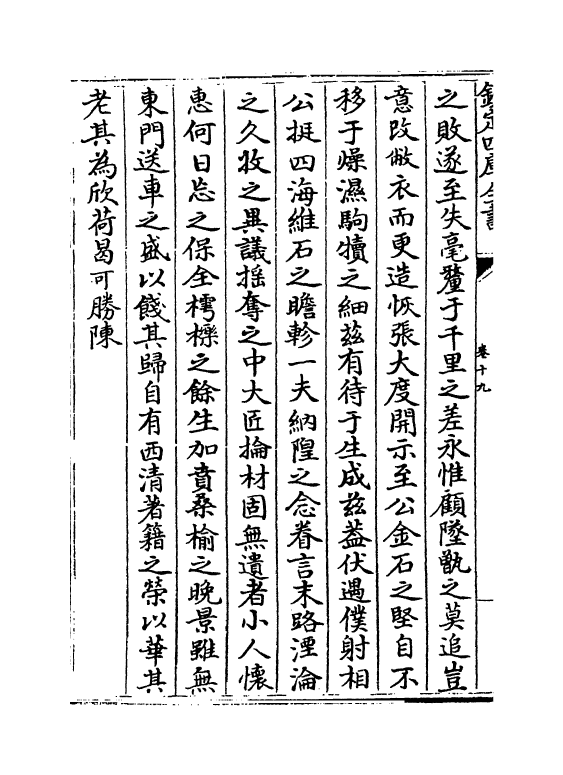 欽定四庫全書
卷十九
之敗遂至失毫釐于千里之差永惟顧墜甑之莫追豈
意改敝衣而更造恢張大度開示至公金石之堅自不
移于燥濕駒犢之細茲有待于生成茲葢伏遇僕射相
公挺四海維石之瞻軫一夫納隍之念眷言末路湮淪
之久收之異議揺奪之中大匠掄材固無遺者小人懷
惠何日忘之保全樗櫟之餘生加賁桑榆之晚景雖無
東門送車之盛以餞其歸自有西清著籍之榮以華其
老其為欣荷曷可勝陳